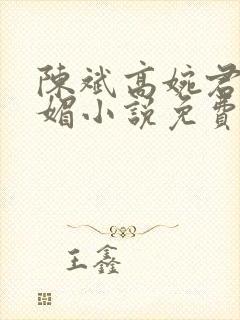 陳斌高婉君
媚小說免費
王鑫